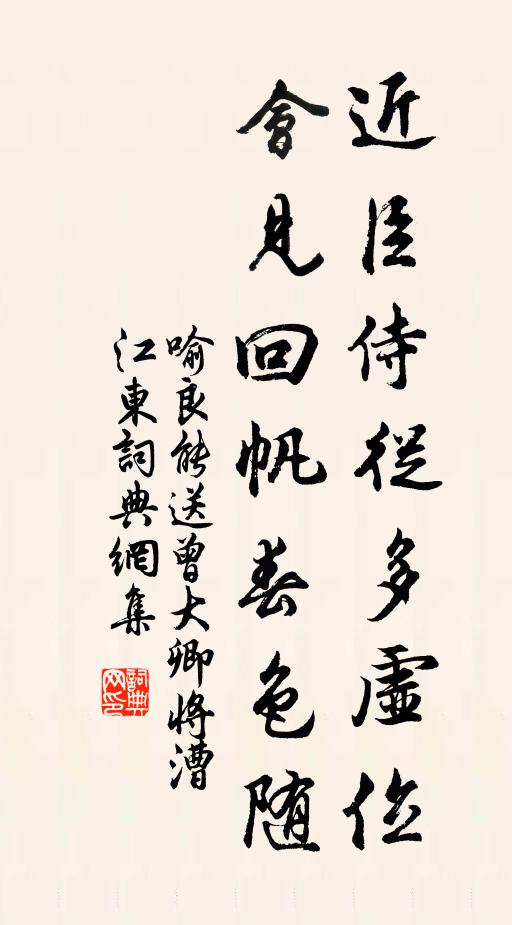 近臣侍從多虛位
會見回帆春色随
喻良能送曾大卿將漕
江東詞典網集
詞典网印